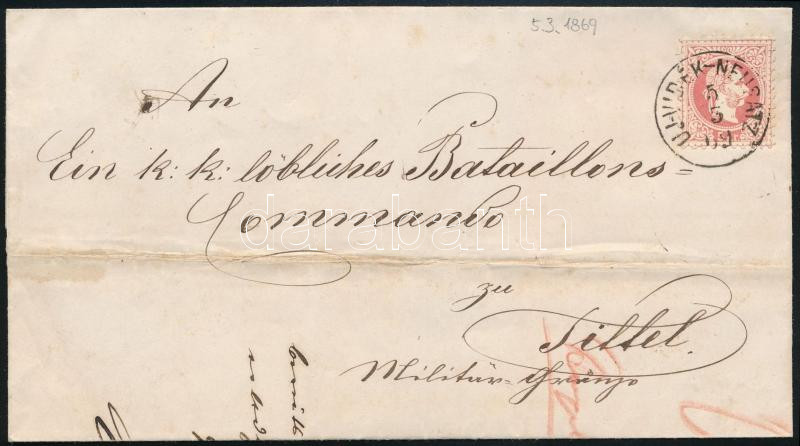 5.3. 1869
UJVIDÉK-NEUSATZ
5
3
69
An
Ein k: k: löbliches Bataillons=
Commando
zu
Tittel.
Militär=Gränze
darabanth